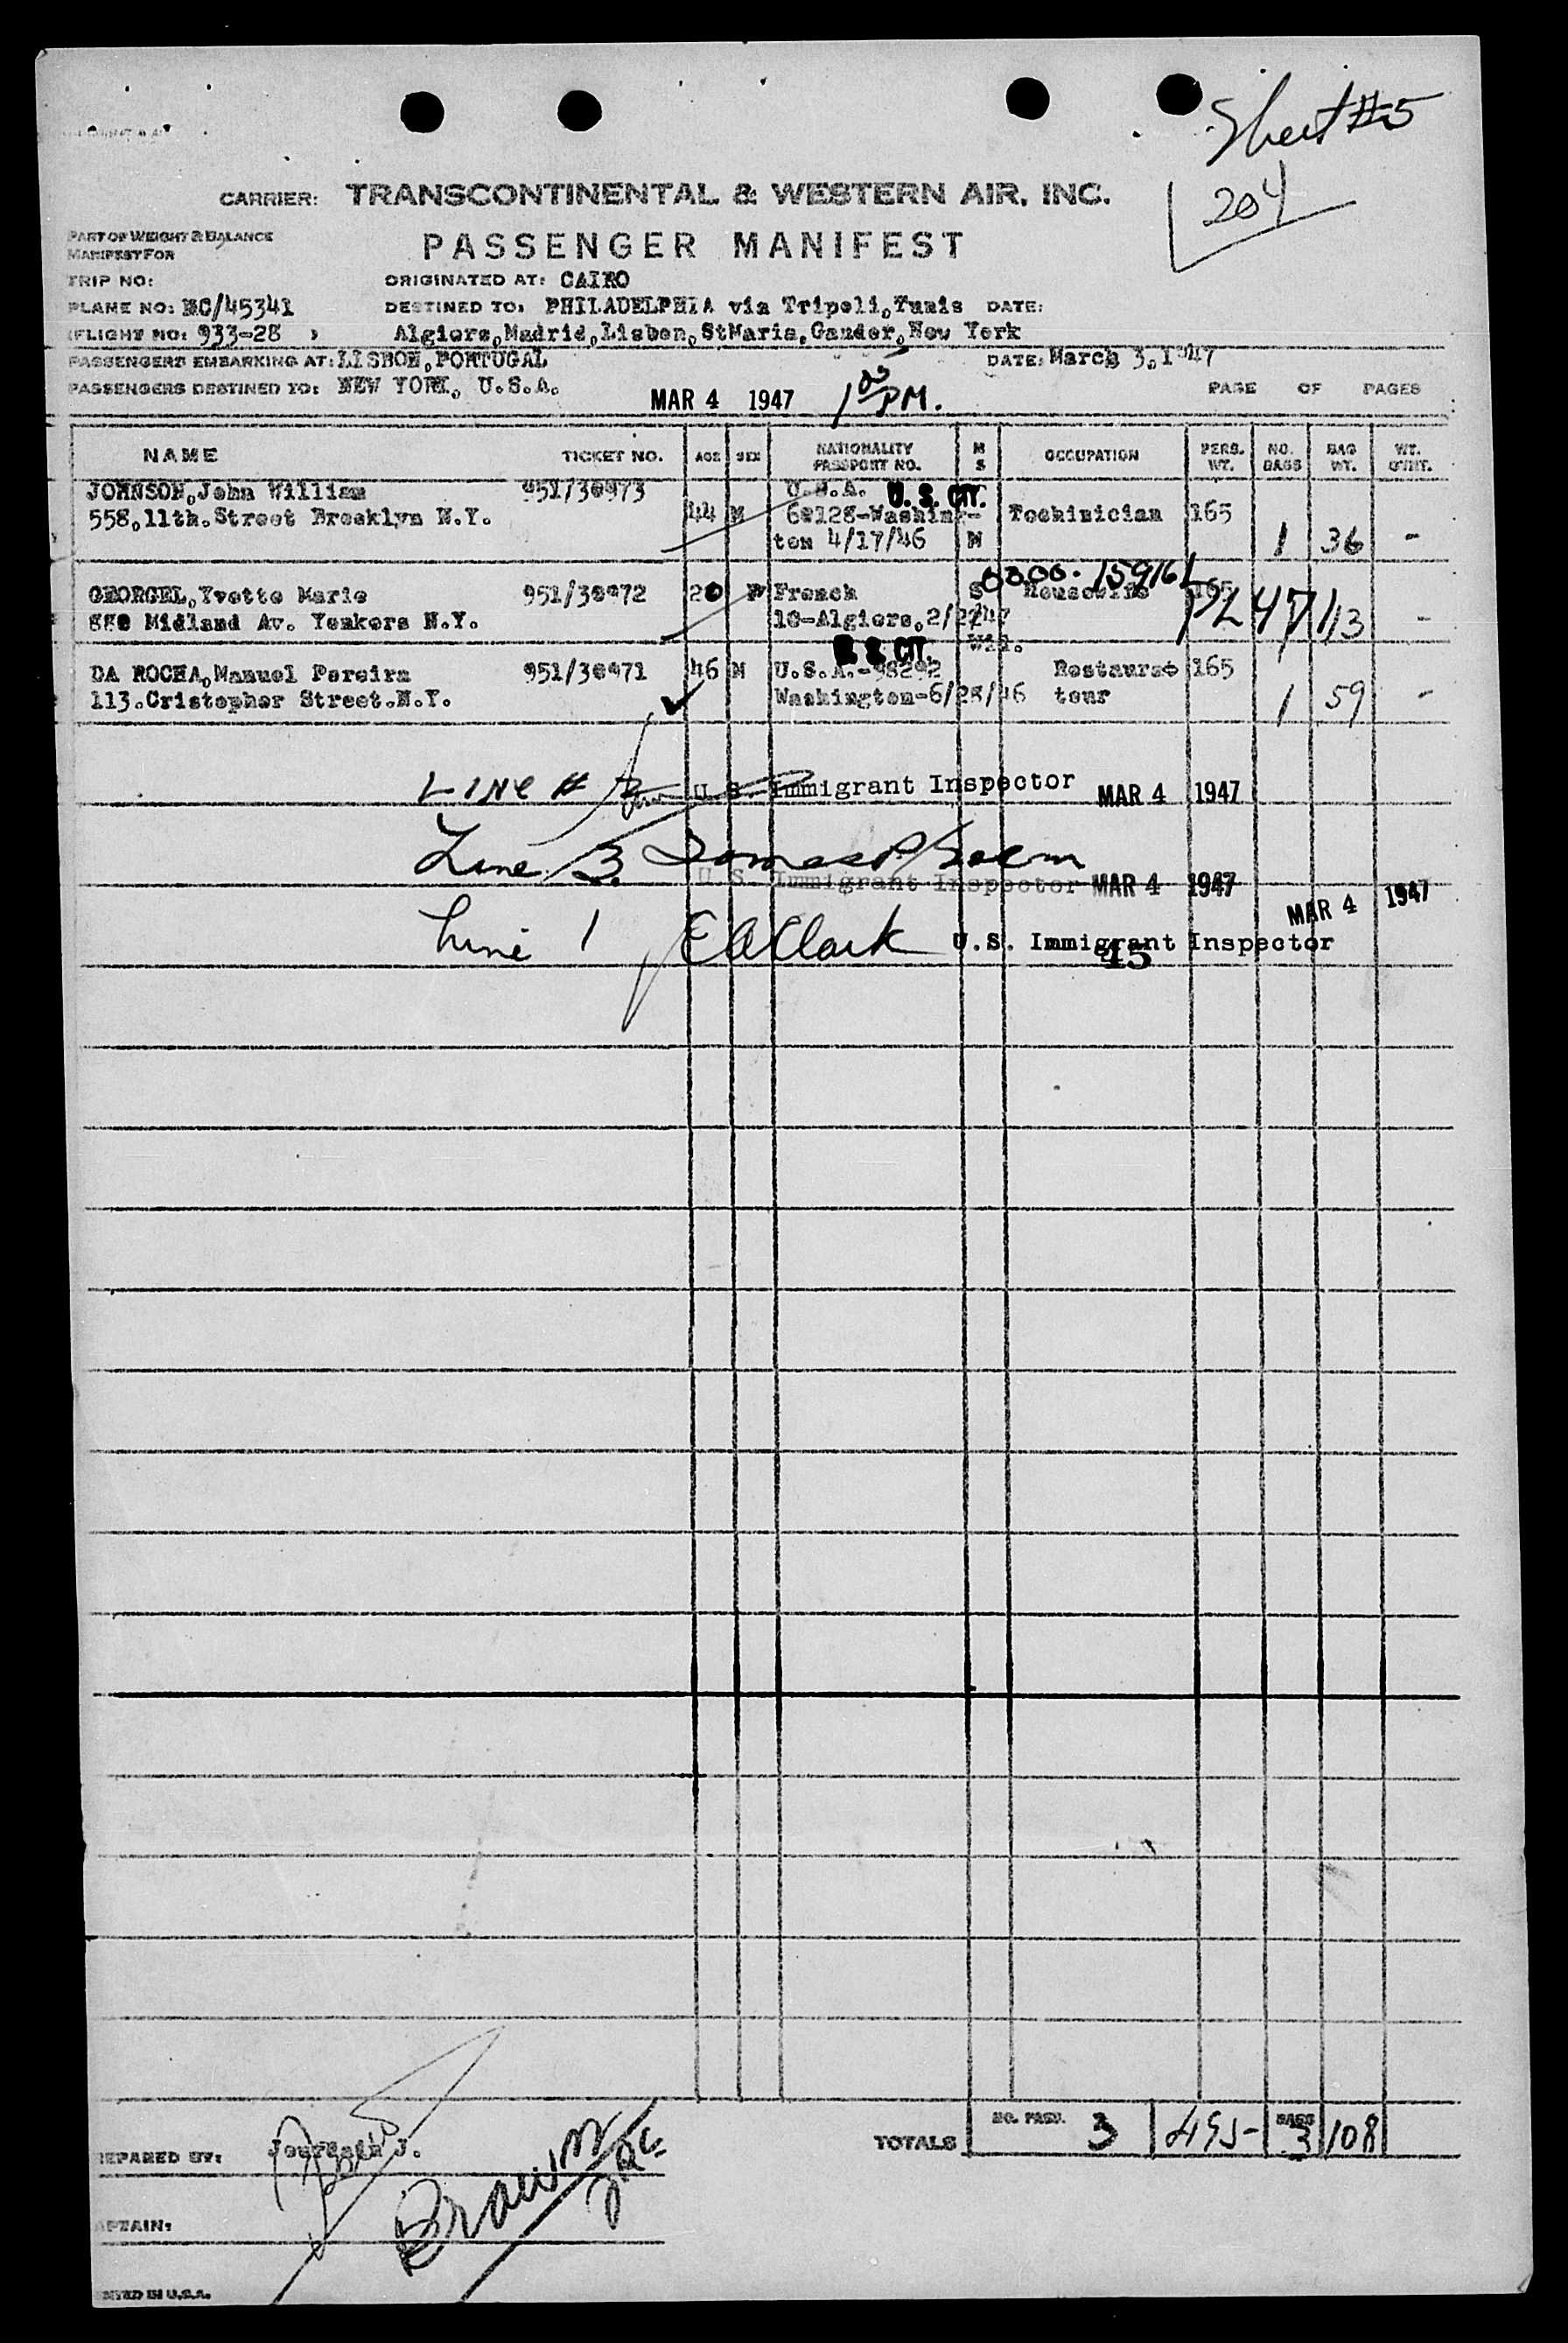 Sheet #5
204
CARRIER: TRANSCONTINENTAL & WESTERN AIR, INC.
PART OF WEIGHT & BALANCE
MANIFEST FOR
PASSENGER MANIFEST
TRIP NO:
ORIGINATED AT: CAIRO
PLANE NO: NC/45341
DESTINED TO: PHILADELPHIA via Tripoli, Tunis DATE:
(FLIGHT NO: 933-28 )
Algiers, Madrid, Lisbon, StMaria, Gander, New York
PASSENGERS EMBARKING AT: LISBON, PORTUGAL
DATE: March 3, 1947
PASSENGERS DESTINED TO: NEW YORK, U.S.A.
MAR 4 1947 1 00 PM.
PAGE OF PAGES
NAME TICKET NO. AGE SEX NATIONALITY PASSPORT NO. M S OCCUPATION PERS. WT. NO. BAGS BAG WT. WT.
JOHNSON, John William 951/30973 U.S.A. U. S. CIT.
558, 11th. Street Brooklyn N.Y. 44 M 60128-Washing- Techinician 165
ton 4/17/46 M 1 36 -
GEORGEL, Yvette Marie 951/30972 20 F French S Housewife 165
880 Midland Av. Yonkers N.Y. 10-Algiers, 2/27/47 13 -
Wid.
U. S. CIT.
DA ROCHA, Manuel Pereira 951/30971 46 M U.S.A.-98292 Restaura- 165
113.Cristopher Street.N.Y. Washington-6/28/46 teur 1 59 -
LINE # 2 U. S. Immigrant Inspector MAR 4 1947
Line 3.
U. S. Immigrant Inspector MAR 4 1947
MAR 4 1947
Line 1 E A Clark U.S. Immigrant Inspector
45
TOTALS NO. PASS. 3 495- BAGS 3 108
EPARED BY:
Brown
APTAIN:
NTED IN U.S.A.